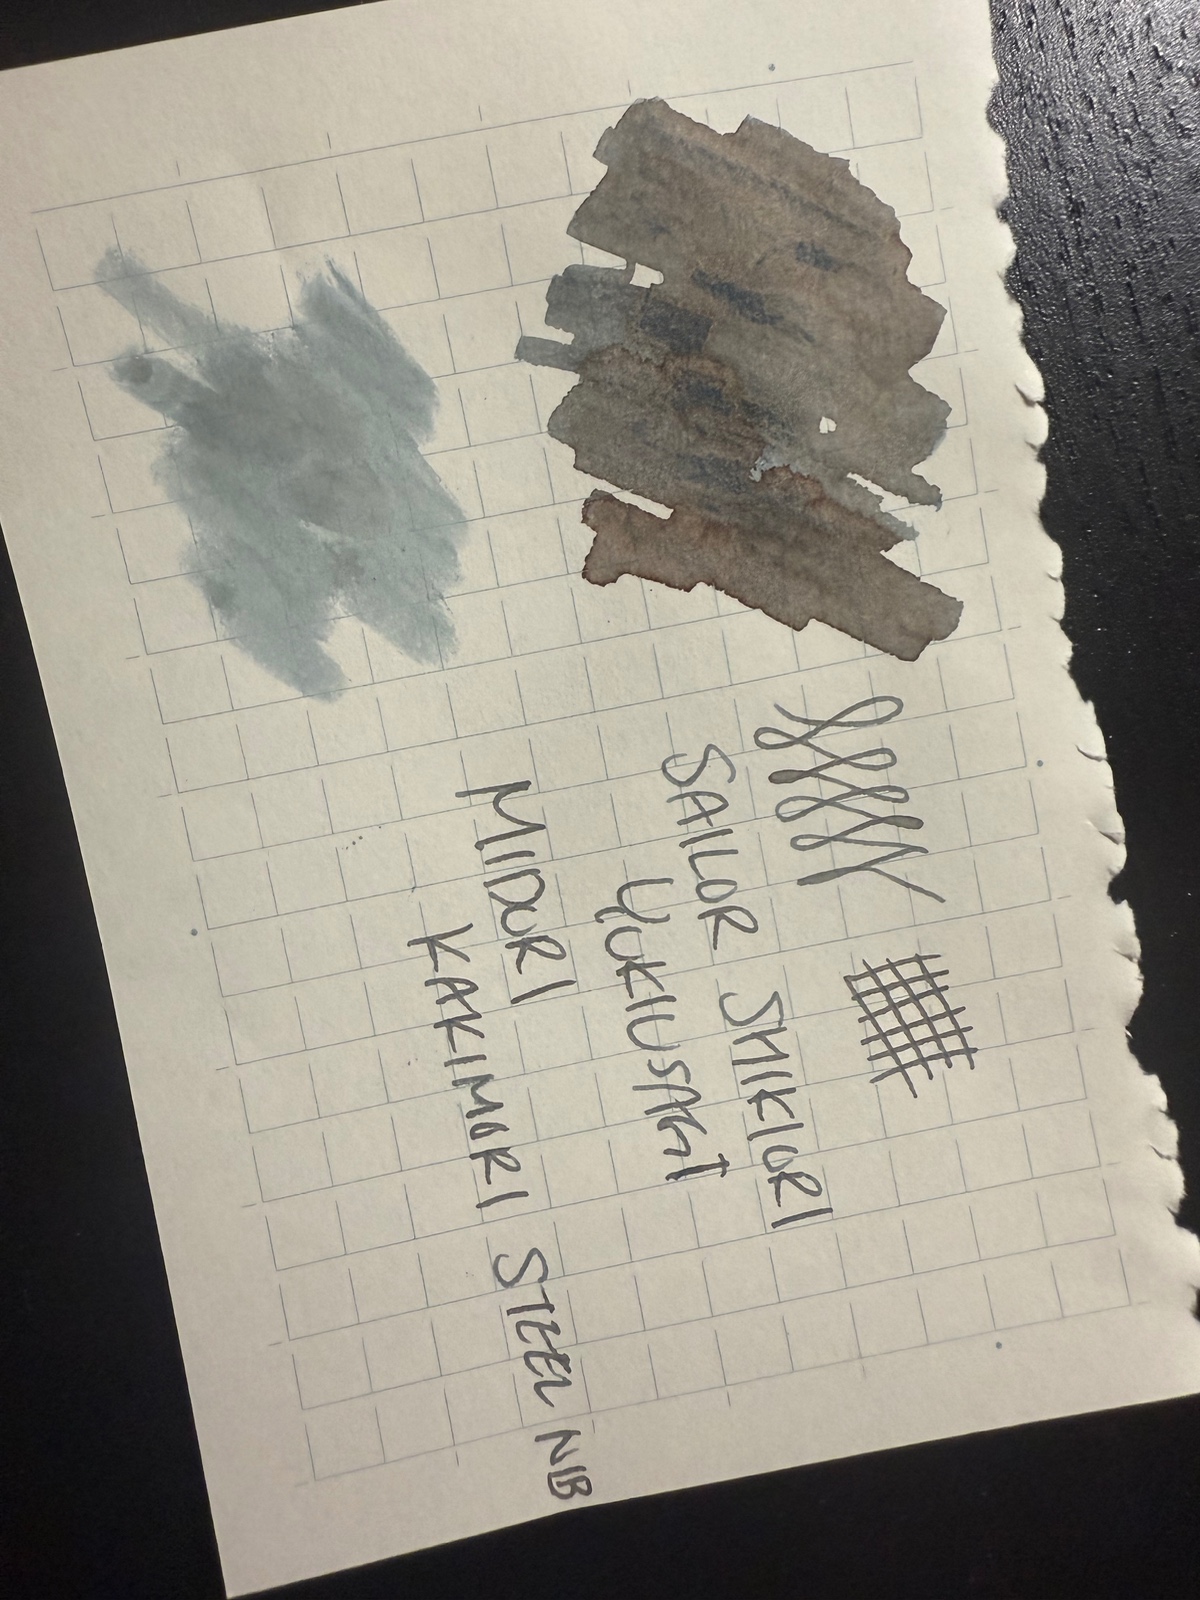 SAILOR SHIKIORI
YUKIUSAGI
MIDORI
KAKIMORI STEEL NIB